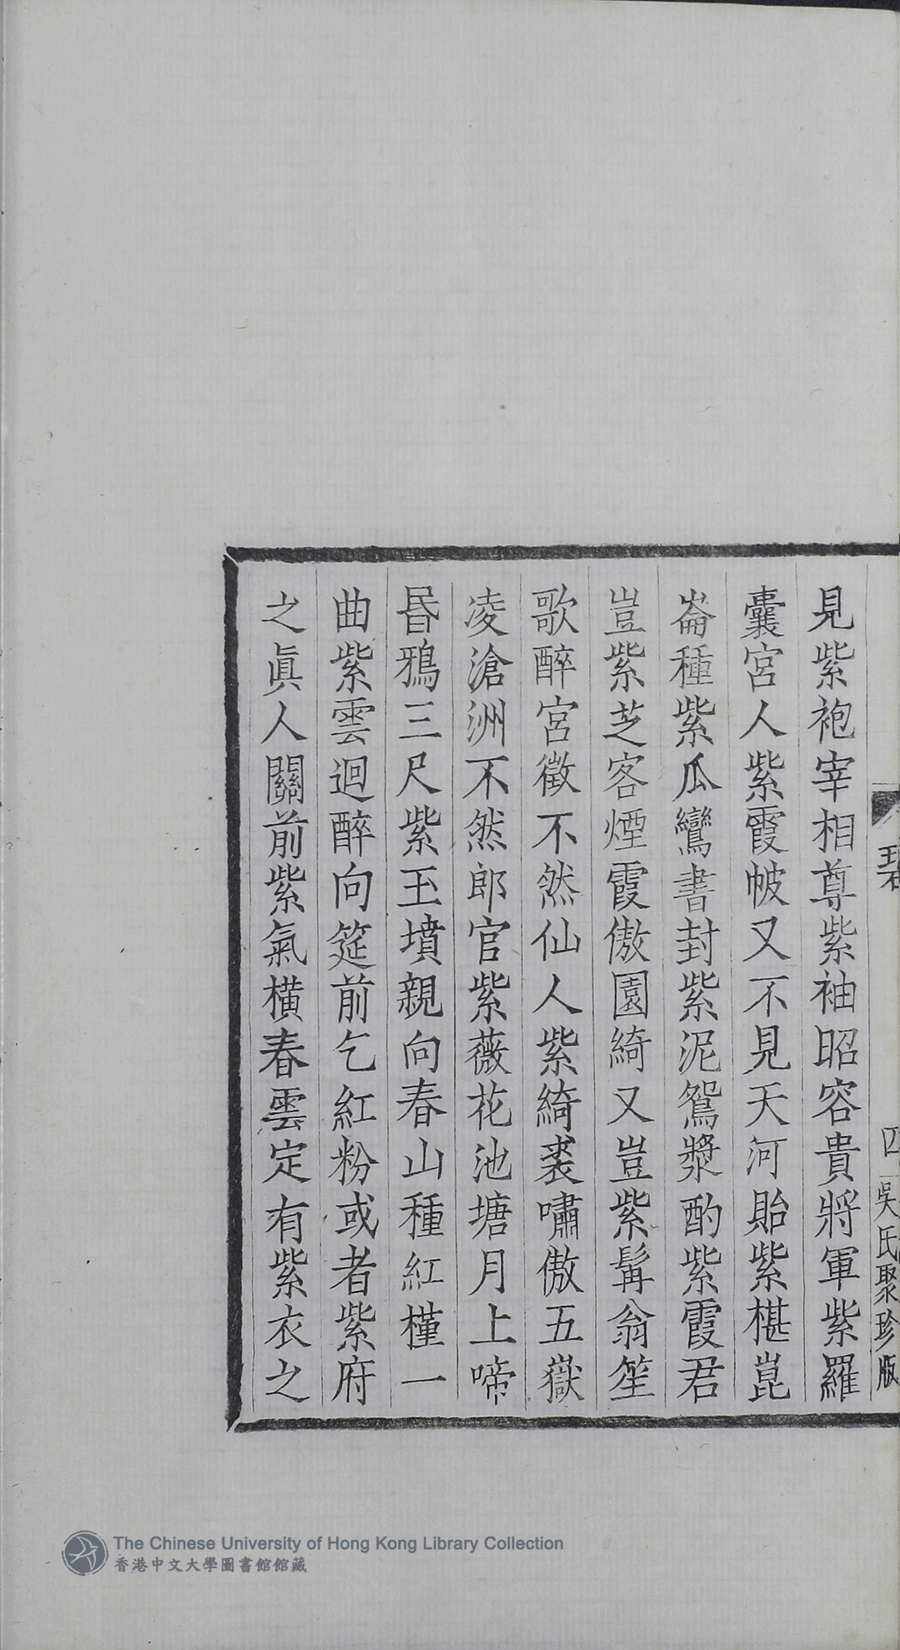 見紫袍宰相尊紫袖昭容貴將軍紫羅
囊宮人紫霞帔又不見天河貽紫椹崑
崙種紫瓜鸞書封紫泥鴛漿酌紫霞君
豈紫芝客煙霞傲園綺又豈紫髯翁笙
歌醉宮徵不然仙人紫綺裘嘯傲五嶽
凌滄洲不然郎官紫薇花池塘月上啼
昏鴉三尺紫玉墳親向春山種紅槿一
曲紫雲迴醉向筵前乞紅粉或者紫府
之眞人關前紫氣橫春雲定有紫衣之
四
吳氏聚珍版
The Chinese University of Hong Kong Library Collection
香港中文大學圖書館館藏